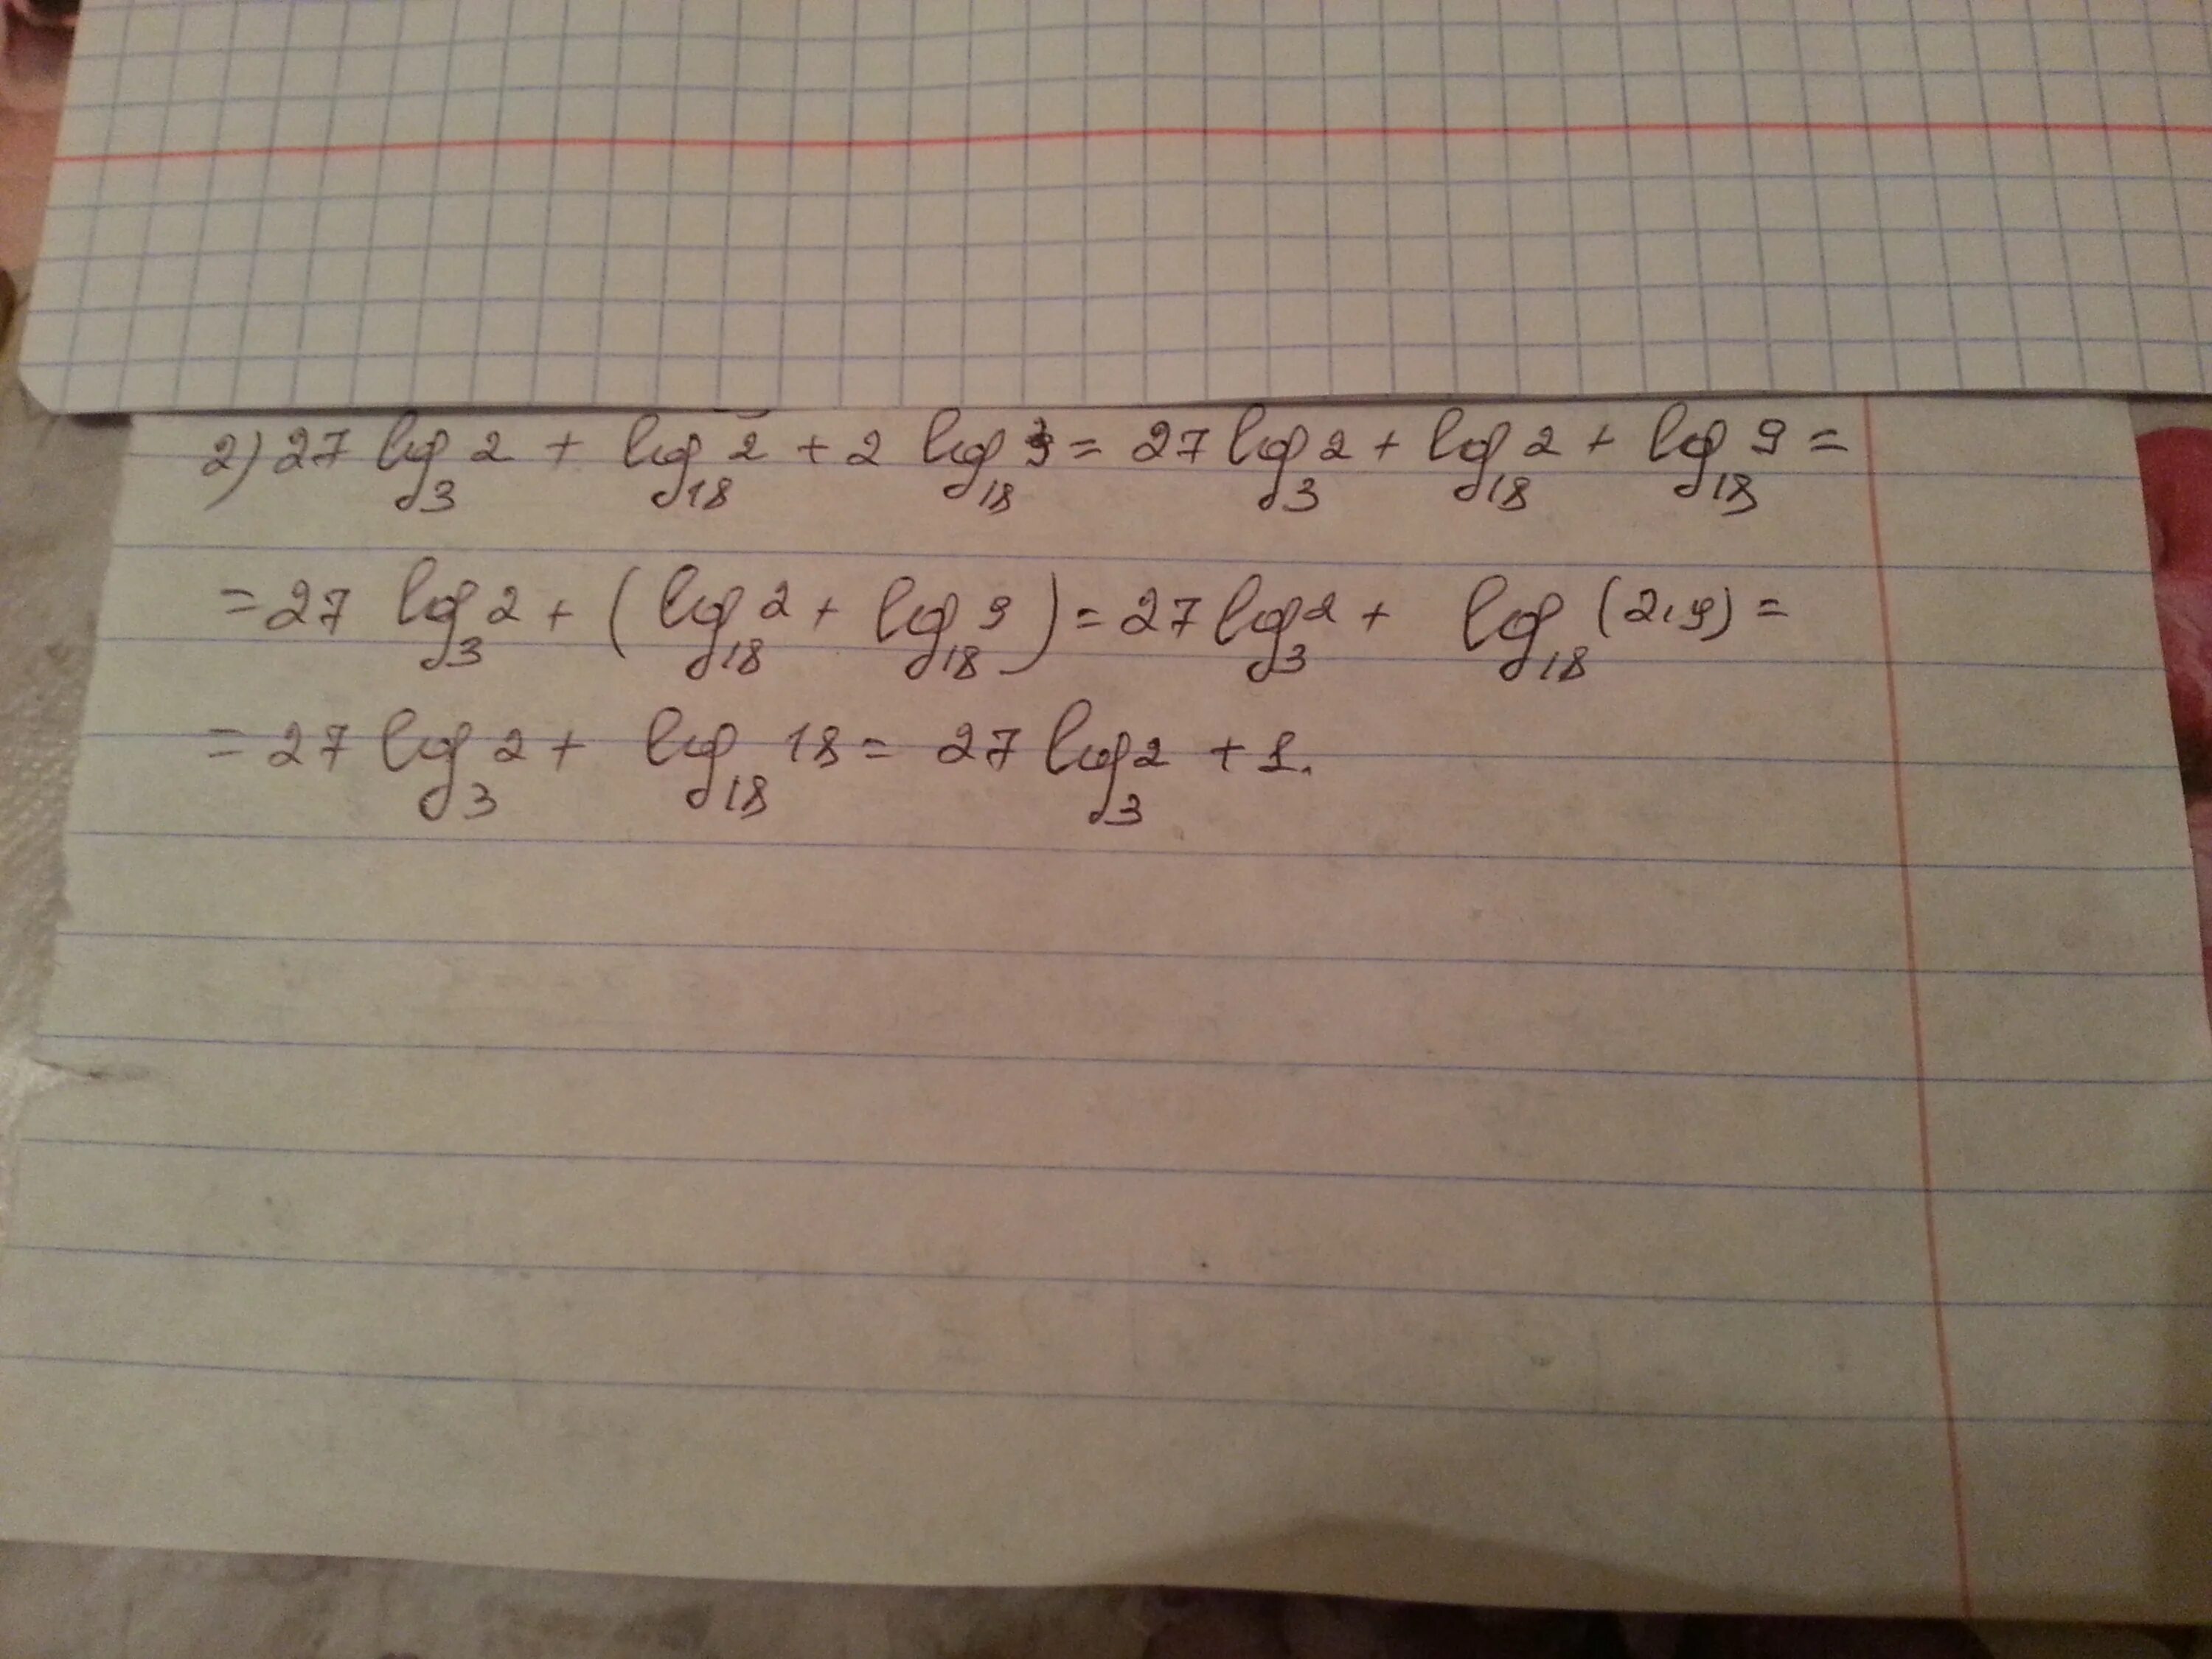 2) 27 log₃ 2 + log₁₈ 2 + 2 log₁₈ 3 = 27 log₃ 2 + log₁₈ 2 + log₁₈ 9 =
= 27 log₃ 2 + (log₁₈ 2 + log₁₈ 9) = 27 log₃ 2 + log₁₈ (2·9) =
= 27 log₃ 2 + log₁₈ 18 = 27 log₃ 2 + 1.